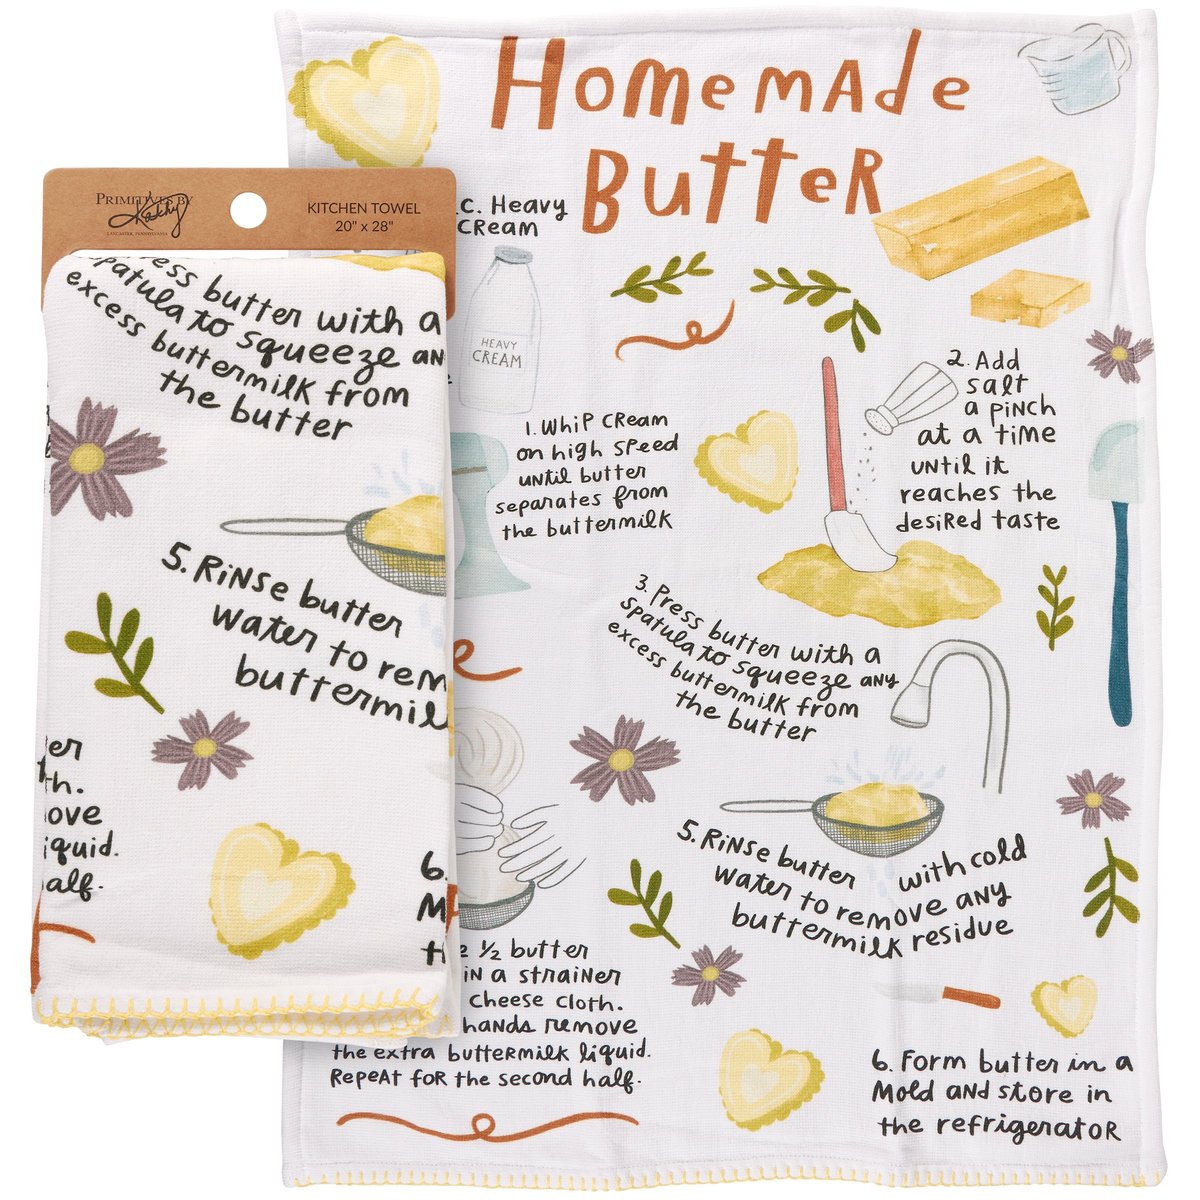 Homemade
Butter
PRIMITIVES BY
Kathy
LANCASTER, PENNSYLVANIA
KITCHEN TOWEL
20" x 28"
butter with a
spatula to squeeze
excess buttermilk from
the butter
5. Rinse butter
water to
6.
C. Heavy
Cream
HEAVY
CREAM
1. Whip cream
on high speed
until butter
separates from
the buttermilk
2. Add
salt
a pinch
at a time
until it
reaches the
desired taste
3. Press butter with a
spatula to squeeze any
excess buttermilk from
the butter
5. Rinse butter with cold
water to remove any
buttermilk residue
1/2 butter
in a strainer
cheese cloth.
hands remove
the extra buttermilk liquid.
Repeat for the second half.
6. Form butter in a
mold and store in
the refrigerator